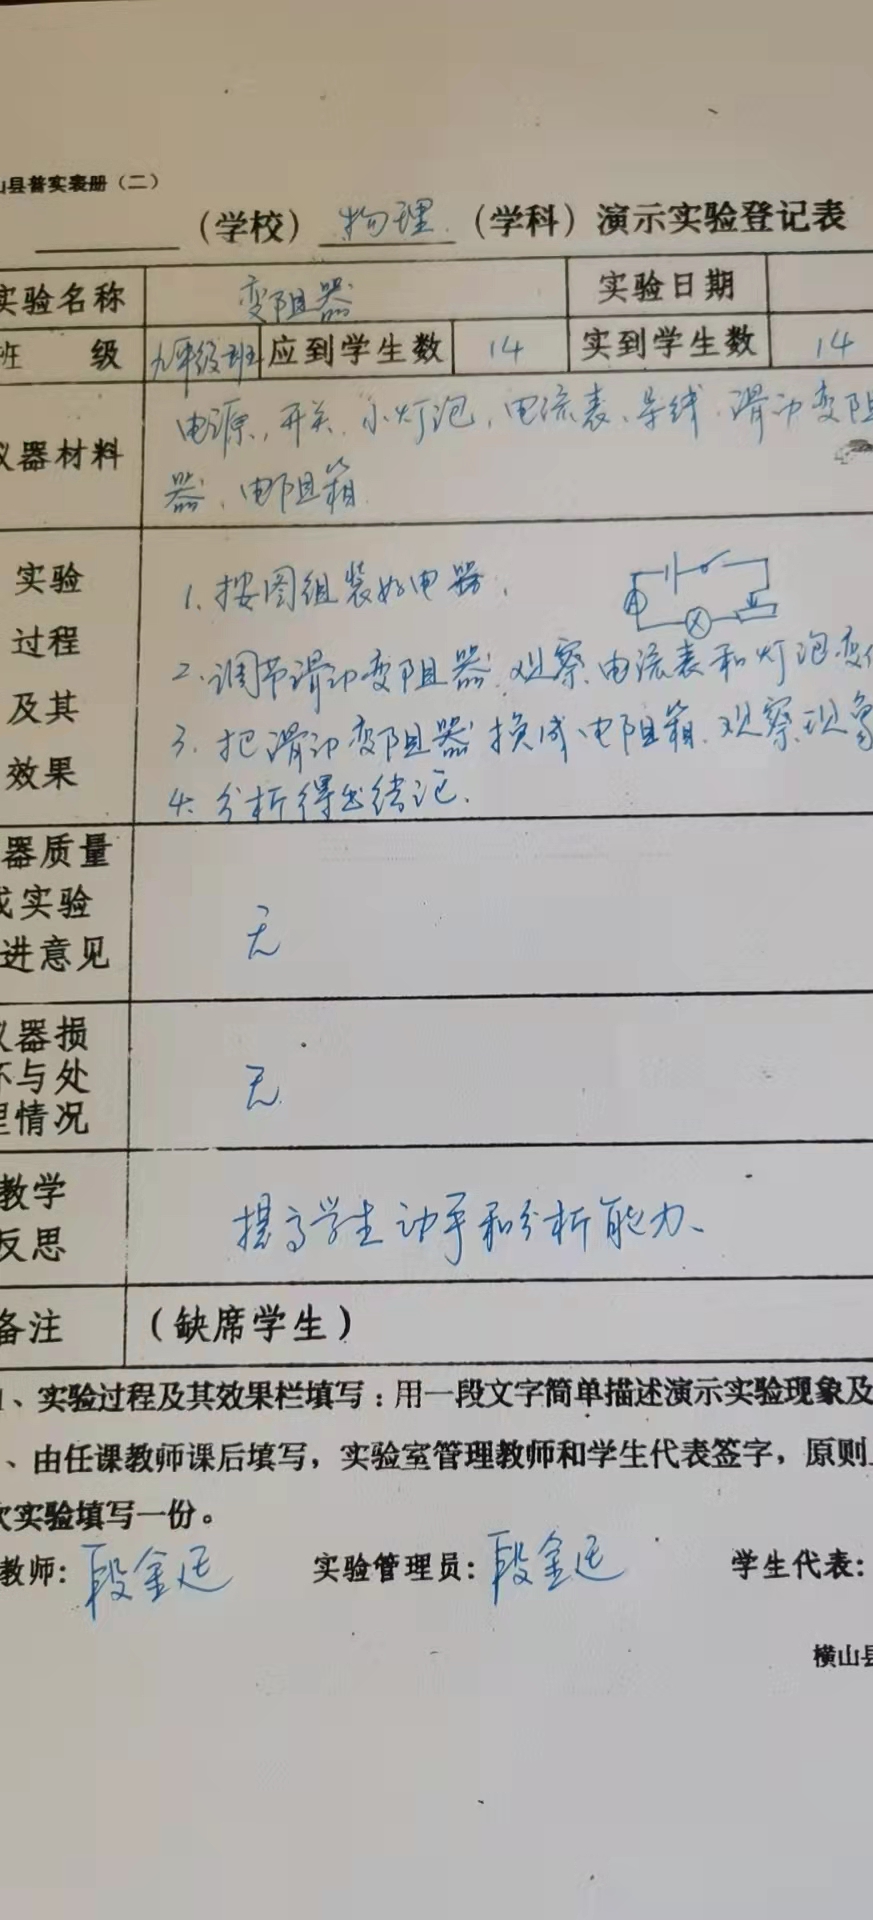 山县普实表册（二）
（学校）物理（学科）演示实验登记表
实验名称 变阻器 实验日期
班 级 九年级班 应到学生数 14 实到学生数 14
仪器材料 电源、开关、小灯泡、电流表、导线、滑动变阻
器、电阻箱
实验
过程
及其
效果
1. 按图组装好电器.
A
2. 调节滑动变阻器.观察电流表和灯泡变化
3. 把滑动变阻器换成电阻箱.观察现象
4. 分析得出结论.
器质量
或实验
进意见
无
仪器损
坏与处
理情况
无
教学
反思
提高学生动手和分析能力、
备注 （缺席学生）
1、实验过程及其效果栏填写：用一段文字简单描述演示实验现象及
、由任课教师课后填写，实验室管理教师和学生代表签字，原则上
次实验填写一份。
教师：段金廷 实验管理员：段金廷 学生代表：
横山县